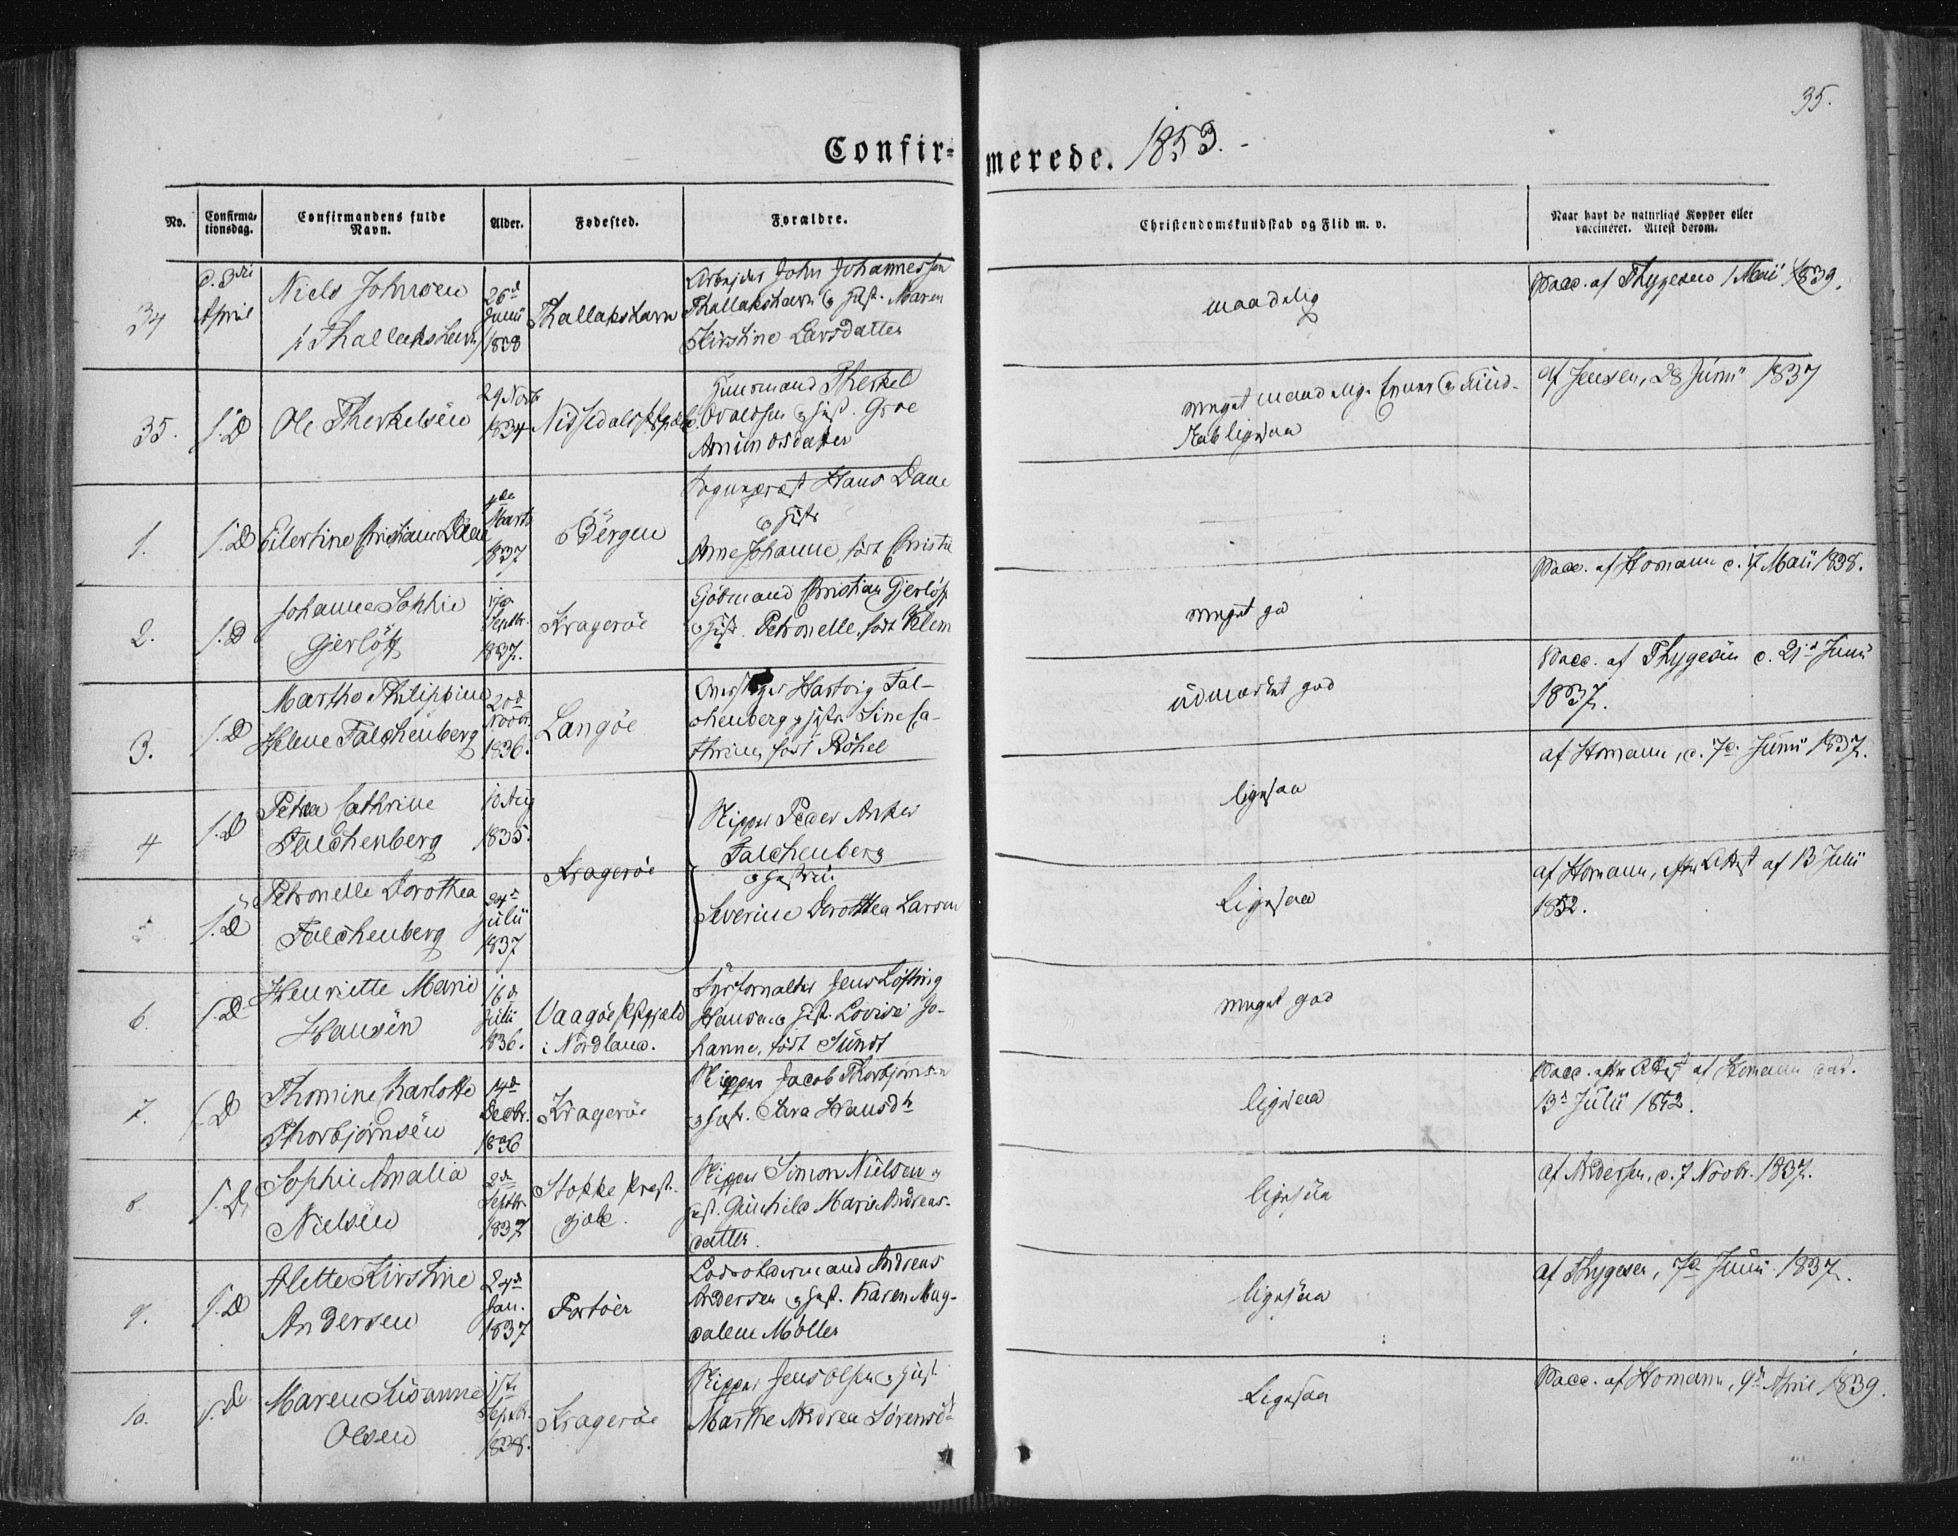 35.
Confir=merede. 1853.-
No. Confirma-tionsdag. Confirmandens fulde Navn. Alder. Fødested. Forældre. Christendomskundskab og Flid m. v. Naar havt de naturlige Kopper eller vaccineret. Attest derom.
34
d. 3die April
Niels Johnsen
Thallakshavn
26de Junii
1838
Thallakshavn
Arbejder John Johannessen
Thallakshavn og Hust. Maren
Kirstine Larsdatter
maadelig
Vacc. af Thygesen 1 Maii 1839.
35.
S. D
Ole Therkelsen
29 Novb
1834
Nissedals
Huusmand Therkel
og Hust. Groe
Amundsdatter
meget maadelig
ligesaa
af Jensen, 28 Junii 1837
1.
S. D
Eilertine Christiane Daae
Marts
1837
Bergen
Sognepræst Hans Daae
og Hustr
Anne Johanne, født Christie
2.
S. D
Johanne Sophie
Gjerløff
Septbr.
1837.
Kragerøe
Christian Gjerløff
og Hust. Petronelle, født Klem
meget god
Vacc. af Homann d. 17 Maii 1838.
3.
S. D
Marthe Philippine
Helene Falchenberg
20de
Novbr.
1836.
Langøe
Hartvig Fal-
chenberg og Hustr. Sine Ca-
thrine, født Røhel
udmærket god
Vacc. af Thygesen d. 21de Junii
1837.
4
S. D
Petra Cathrine
Falchenberg
10 Aug
1835.
Kragerøe
Skipper Peder Anker
Falchenberg
og Hustrue
Severine Dorothea Larsen
ligesaa
af Homann, d. 7de Junii 1837.
S. D
Petronelle Dorothea
Falchenberg
24de
Julii
1837
Ligesaa
af Homann, efter Attest af 13 Julii
1852.
6.
S. D
Henriette Marie
Hansen
16de
Julii
1836.
Vaagøe Præstgjæld
i Nordland.
Fyrforvalter Jens Løfting
Hansen og Hust. Lovise Jo-
hanne, født Sundt
meget god
7.
S. D
Thomine Charlotte
Thorbjørnsen
14de
Decbr.
1836
Kragerøe
Skipper Jacob Thorbjørnsen
og Hust. Sara Hansdtr
ligesaa
Vacc. efter Attest af Homann dat.
13de Julii 1852.
8.
S. D.
Sophie Amalia
Nielsen
2de
Septbr.
1837
Stokke Præst-
gjæld.
Skipper Simon Nielsen og
Hust. Gunhild Marie Andreas-
datter.
ligesaa
af Andersen, d. 7 Novbr. 1837.
9.
S. D
Alette Kirstine
Andersen
24de
Jan.
1837
Portøer
Andreas
Andersen og Hust. Karen Mag-
dalene Møller
ligesaa
af Thygesen, 7de Junii 1837.
10.
S. D
Maren Susanne
Olsen
Septbr.
1838.
Kragerøe
Skipper Jens Olsen og Hust
Marthe Andrea Sørensdt
Ligesaa
Vacc. af Homann, 9de April 1839.